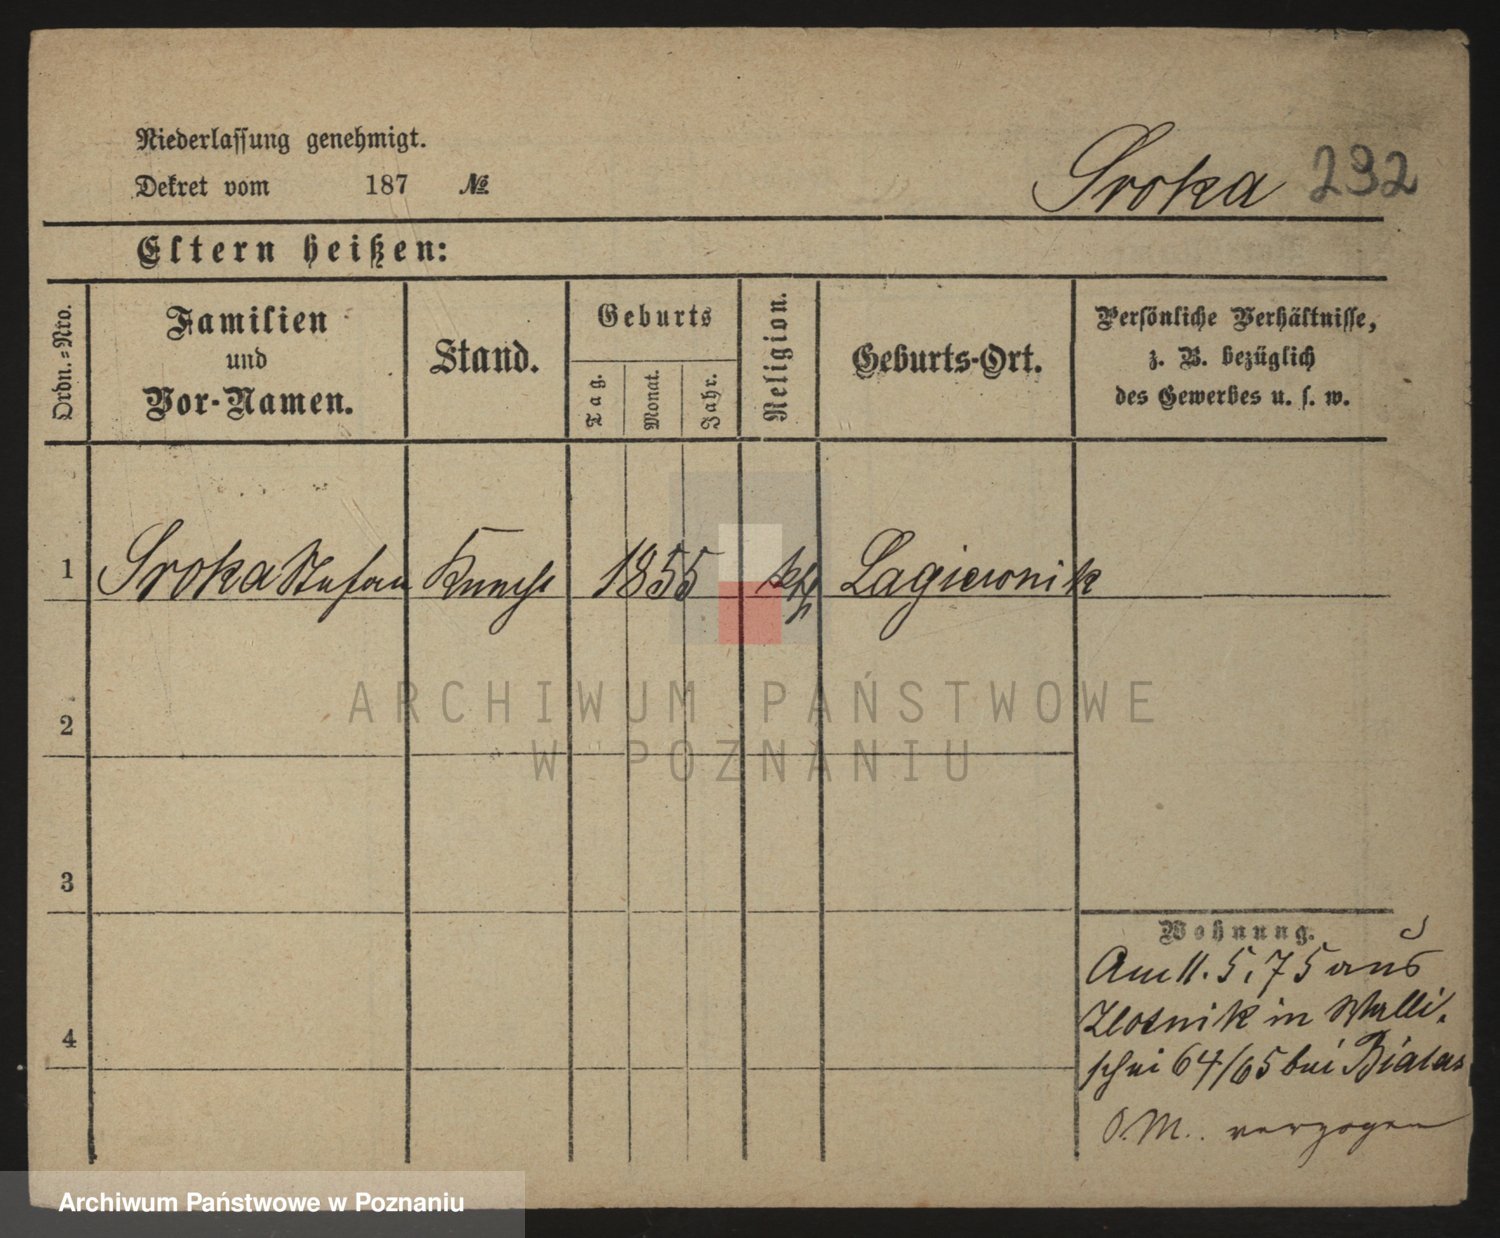 Niederlassung genehmigt.
Dekret vom 187 №
Sroka 232
Eltern heißen:
Ordn.=Nro.
Familien
und
Vor-Namen.
Stand.
Geburts
Tag.
Monat.
Jahr.
Religion.
Geburts-Ort.
Persönliche Verhältnisse,
z. B. bezüglich
des Gewerbes u. s. w.
1 Sroka Stefan Knecht 1855 kth Lagiewnik
2
3
4
Wohnung.
Am 11.5.75 aus
Zlotnik in Walli-
schei 64/65 bei Bialas
O.M. verzogen
ARCHIWUM PAŃSTWOWE
W POZNANIU
Archiwum Państwowe w Poznaniu